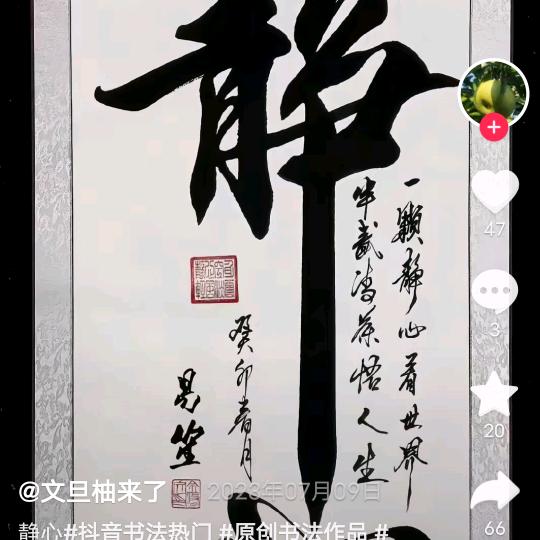 静
一颗静心看世界
半盏清茶悟人生
癸卯春月
47
3
20
66
@文旦柚来了 2023年07月09日
静心#抖音书法热门 #原创书法作品 #